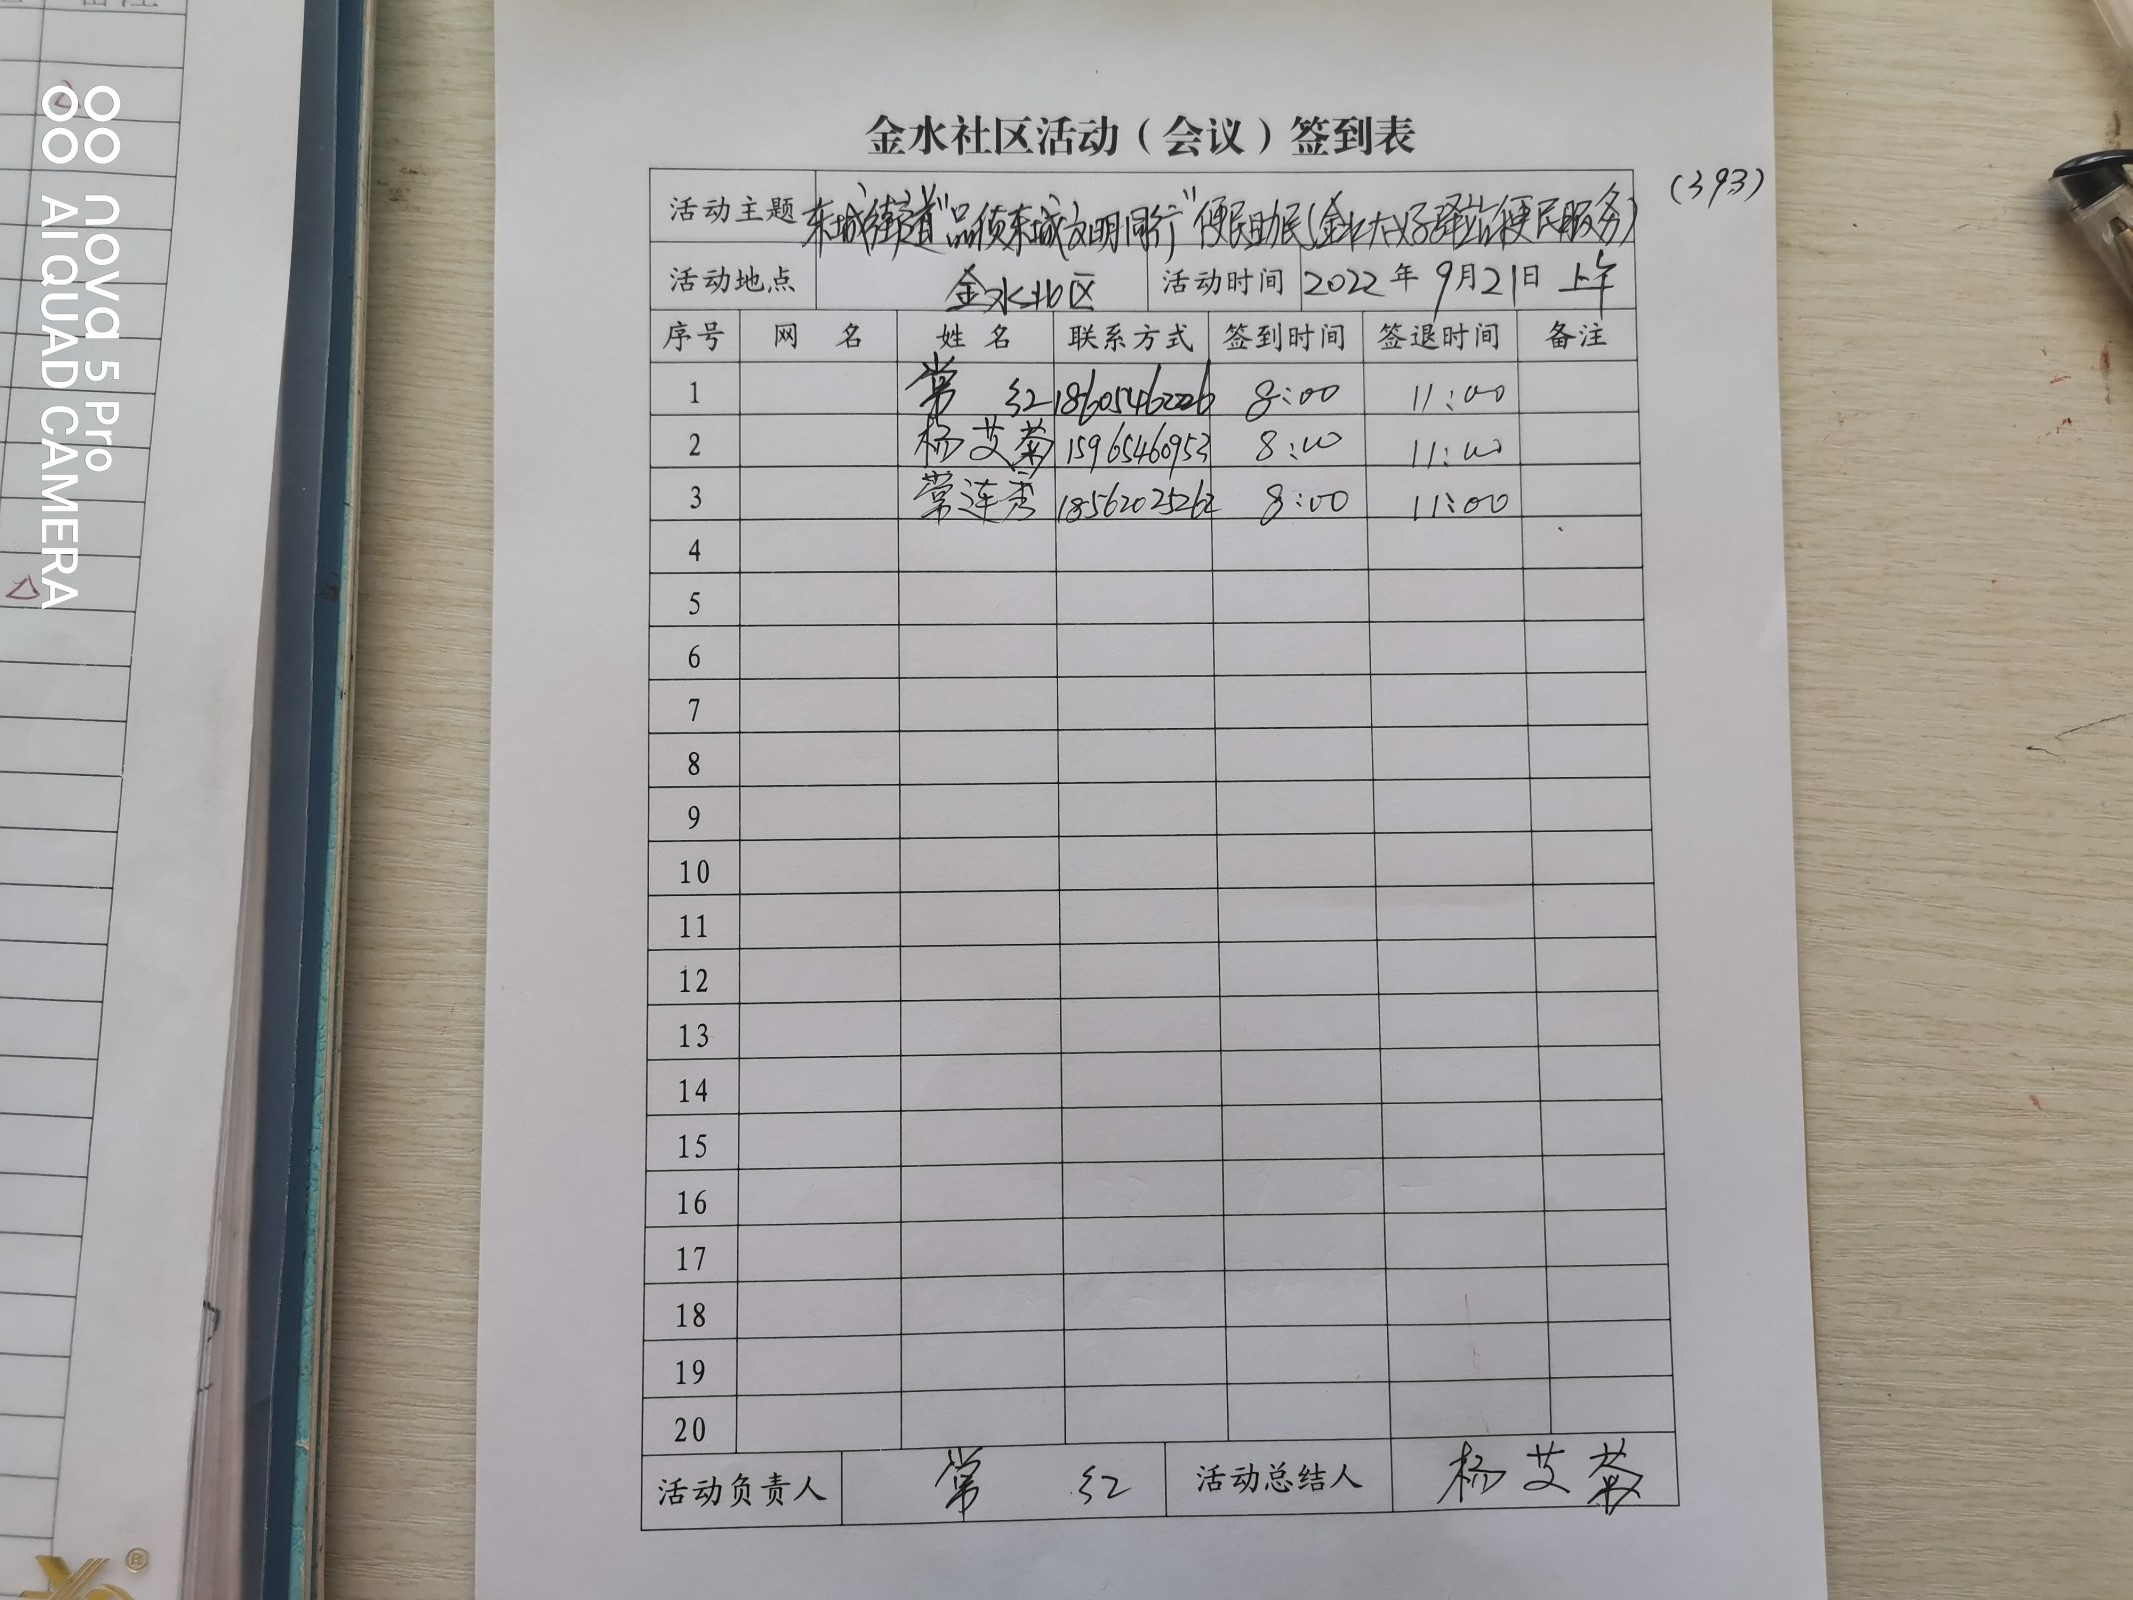 金水社区活动（会议）签到表
(393)
活动主题 东城街道"品质东城文明同行"便民助民(金水大嫂驿站便民服务)
活动地点 金水社区 活动时间 2022年9月21日 上午
序号 网 名 姓 名 联系方式 签到时间 签退时间 备注
1 常 红 18605462226 8:00 11:00
2 杨艾菊 15965460953 8:00 11:00
3 常连秀 18562025262 8:00 11:00
4
5
6
7
8
9
10
11
12
13
14
15
16
17
18
19
20
活动负责人 常 红 活动总结人 杨艾菊
nova 5 Pro
AI QUAD CAMERA
备注